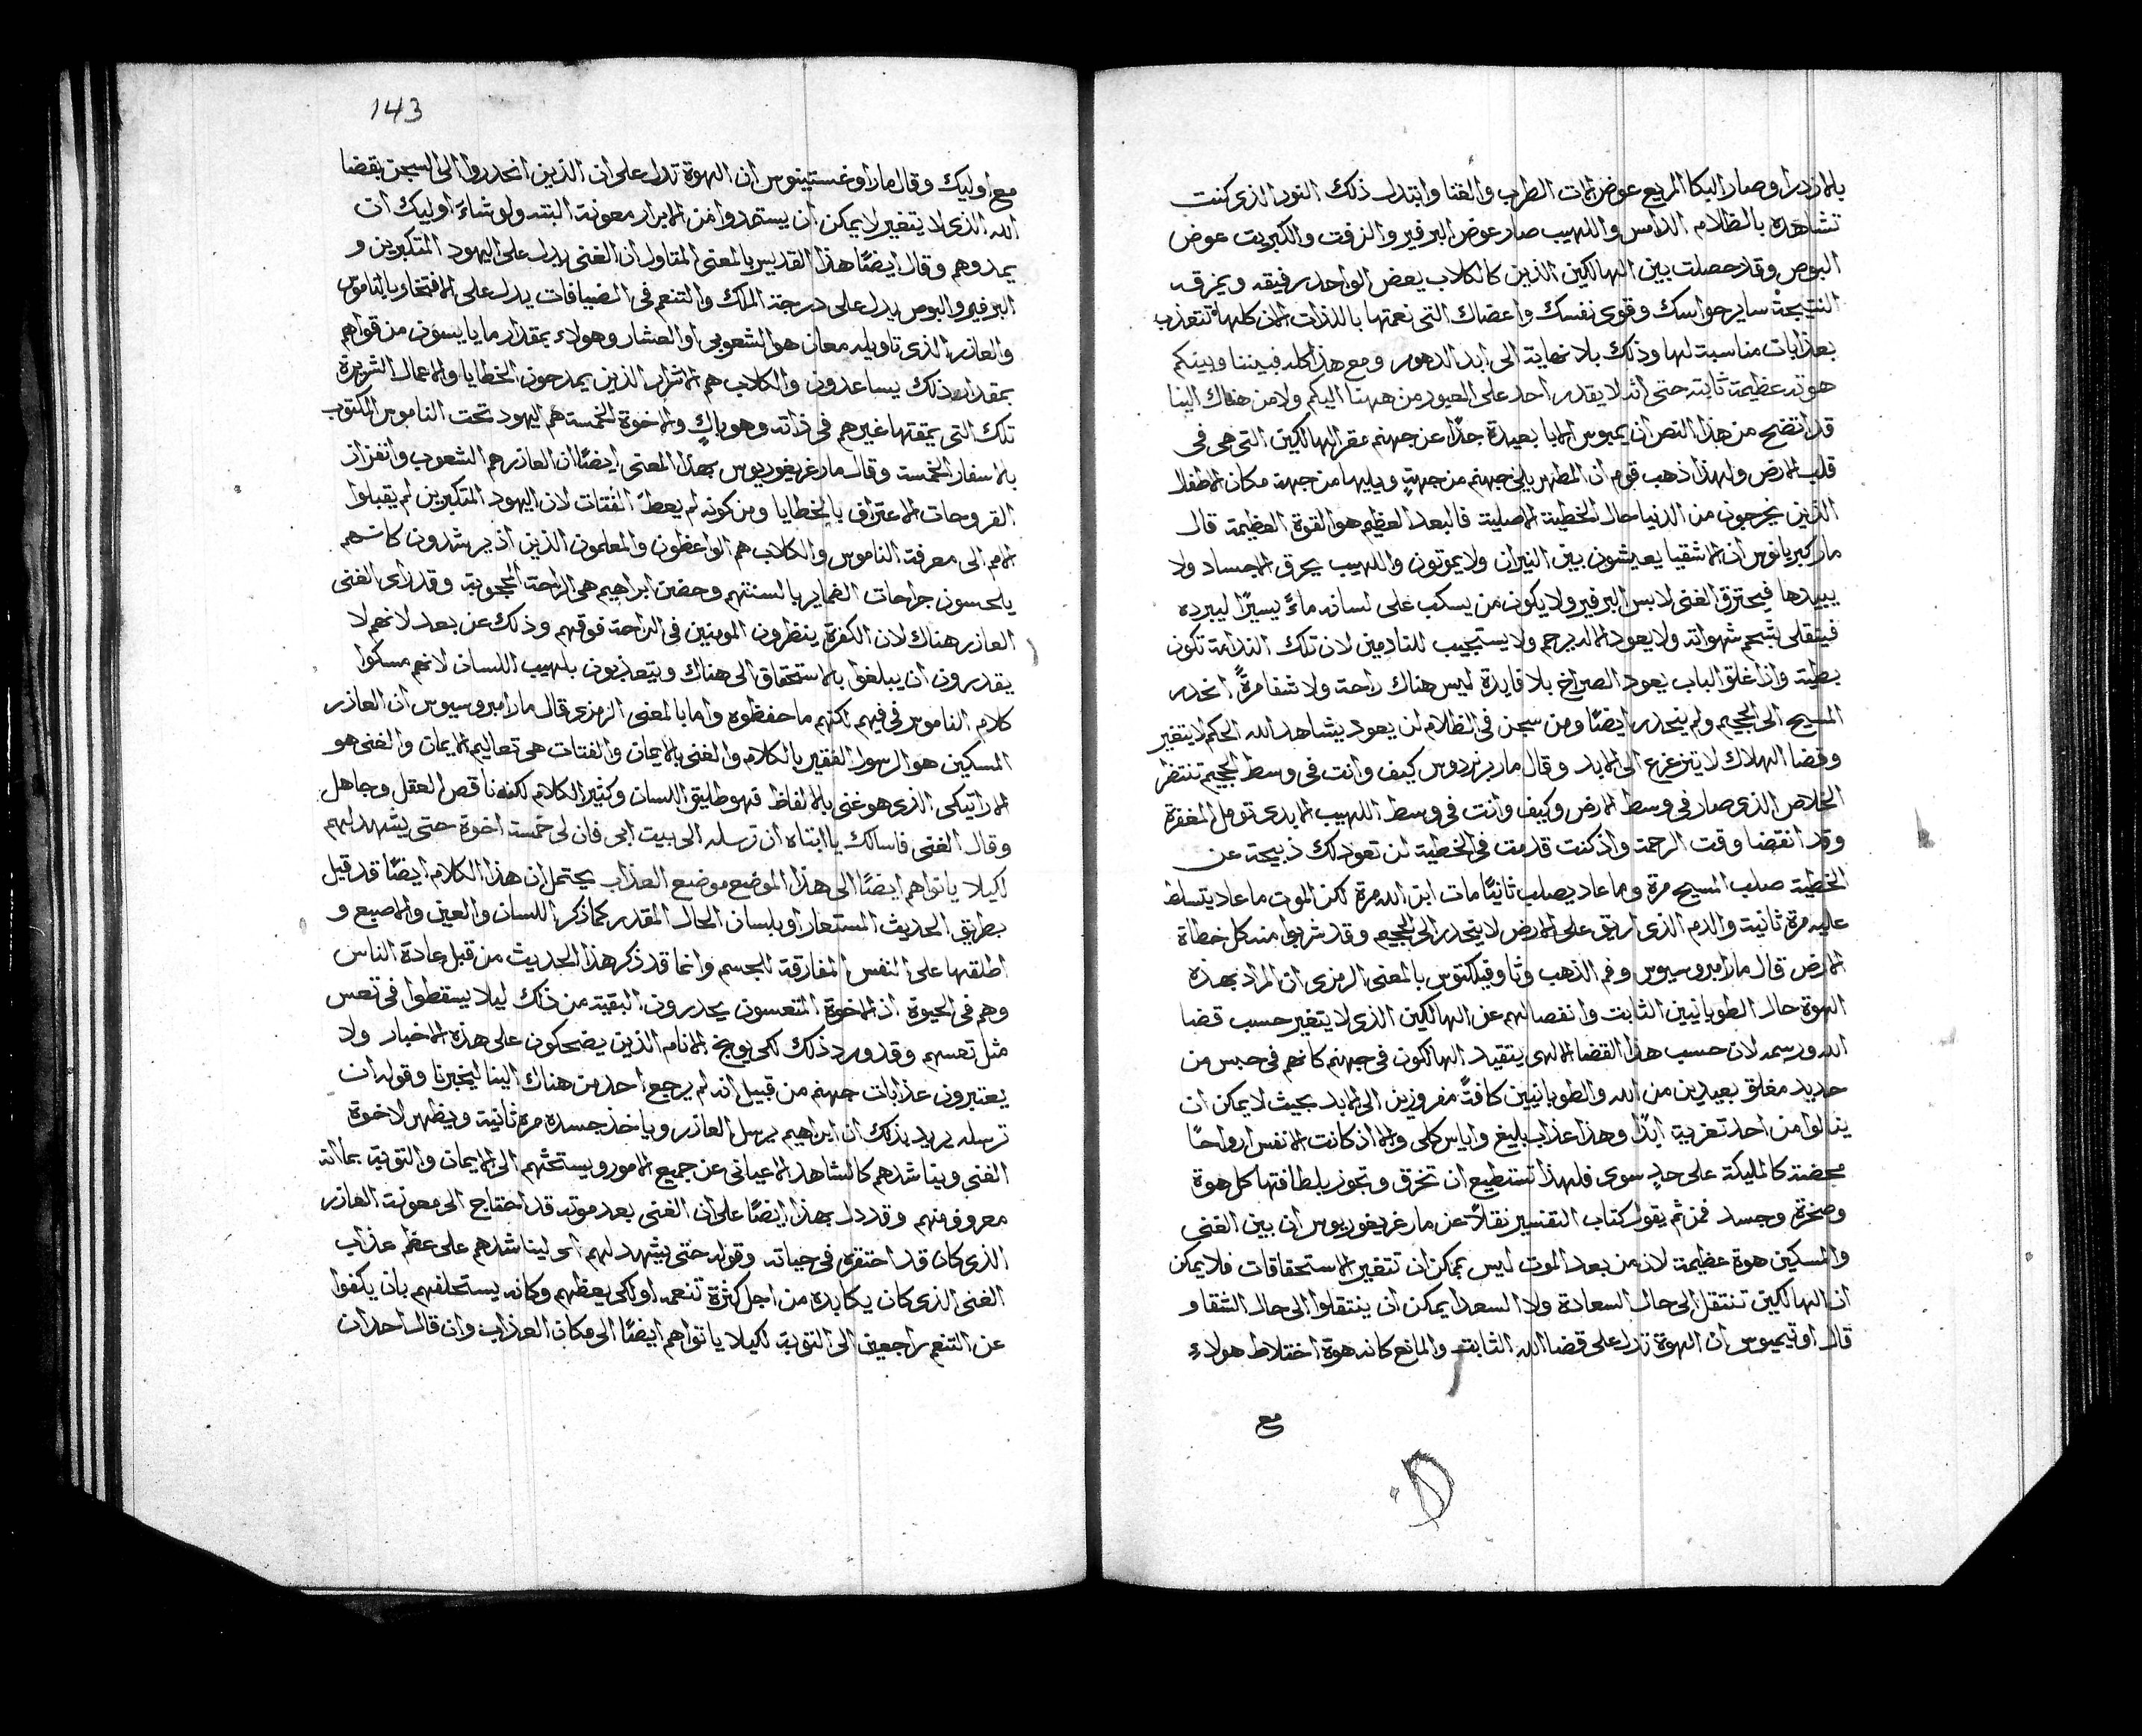 بالازدرا وصار البكا المريع عوض الات الطرب والغنا وابتدل ذلك النور الذى كنت
تشاهده بالظلام الدامس واللهيب صار عوض البرفير والزفت والكبريت عوض
البوص وقد حصلت بين الهالكين الذين كالكلاب يعض الواحد رفيقه ويمزقه
النتيجة ساير حواسك وقوى نفسك واعضاك التى نعمتها بالذات الان كلها تتعذب
بعذابات مناسبة لها وذلك بلا نهاية الى ابد الدهور ومع هذا كله فبيننا وبينكم
هوته عظيمة ثابته حتى انه لا يقدر احد على العبور من ههنا اليكم ولا من هناك الينا
قد اتضح من هذا النص ان يمبوس الابا بعيدة جدًا عن جهنم مقر الهالكين التى هى فى
قلب الارض ولهذا ذهب قوم ان المطهر يلى جهنم من جهةٍ ويليها من جهة مكان الاطفال
الذين يخرجون من الدنيا حال الخطية الاصلية فالبعد العظيم هو القوة العظيمة قال
مار كبريانوس ان الاشقيا يعيشون بين النيران ولا يموتون واللهيب يحرق الاجساد ولا
يبيدها فيحترق الغنى لابس البرفير ولا يكون من يسكب على لسانه ماءً يسيرًا ليبرده
فيتقلى بشحم شهواته ولا يعود الاله يرحم ولا يستجيب للنادمين لان تلك الندامة تكون
بطية واذا غلق الباب يعود الصراخ بلا فايدة ليس هناك راحة ولا شفا مرةً انحدر
المسيح الى الجحيم ولم ينحدر ايضًا ومن سجن فى الظلام لن يعود يشاهد الله الحكم لا يتغير
وقضا الهلاك لا يتزعزع الى الابد وقال مار برنردوس كيف وانت فى وسط الجحيم تنتظر
الخلاص الذى صار فى وسط الارض وكيف وانت فى وسط اللهيب الابدى تومل المغفرة
وقد انقضا وقت الرحمة واذ كنت قد مت فى الخطية لن تعود لك ذبيحة عن
الخطية صلب المسيح مرة وما عاد يصلب ثانيًا مات ابن الله مرة لكن الموت ما عاد يتسلط
عليه مرة ثانية والدم الذى اريق على الارض لا ينحدر الى الجحيم وقد شربوا منه كل خطاة
الارض قال مار امبروسيوس وفم الذهب وثاوفيلكتوس بالمعنى الرمزى ان المراد بهذه
الهوة حال الطوبانيين الثابت وانفصالهم عن الهالكين الذى لا يتغير حسب قضا
الله ورسمه لان حسب هذا القضا الالهى يتقيد الهالكون فى جهنم كانهم فى حبس من
حديد مغلق بعيدين من الله والطوبانيين كافتً مفروزين الى الابد بحيث لا يمكن ان
ينالوا من احد تعزية ابدًا وهذا عذاب بليغ واياس كلى والا اذ كانت الانفس ارواحًا
محضة كالمليكة على حدٍ سوى فلهذا تستطيع ان تخرق وتجوز بلطافتها كل هوة
وصخرة وجسد فمن ثم يقول كتاب التفسير نقلاً عن مار غريغوريوس ان بين الغنى
والمسكين هوة عظيمة لان من بعد الموت ليس يمكن ان تتغير الاستحقاقات فلا يمكن
ان الهالكين تنتقل الى حال السعادة ولا السعدا يمكن ان ينتقلوا الى حال الشقا و
قال اوتيميوس ان الهوة تدل على قضا الله الثابت والمانع كانه هوة اختلاط هولاء
مع
143
مع اوليك وقال مار اوغستينوس ان الهوة تدل على ان الذين انحدروا الى السجن بقضا
الله الذى لا يتغير لا يمكن ان يستمدوا من الابرار معونة البته ولو شاءَ اوليك ان
يمدوهم وقال ايضًا هذا القديس بالمعنى المتاول ان الغنى يدل على اليهود المتكبرين و
البرفير والبوص يدل على درجة الملك والتنعم فى الضيافات يدل على الافتخار بالناموس
والعازر الذى تاويله معان هو الشعوبى او العشار وهولاء بمقدار ما ياىسون من قواهم
بمقدار ذلك يساعدون والكلاب هم الاشرار الذين يمدحون الخطايا والاعمال الشريرة
تلك التى يمقتها غيرهم فى ذاته وهو باكٍ والاخوة الخمسة هم اليهود تحت الناموس المكتوب
بالاسفار الخمسة وقال مار غريغوريوس بهذا المعنى ايضًا ان العازر هم الشعوب وانفزاز
القروحات الاعتراف بالخطايا ومن كونه لم يعطَ الفتات لان اليهود المتكبرين لم يقبلوا
الامم الى معرفة الناموس والكلاب هم الواعظون والمعلمون الذين اذ يرشدون كانهم
يلحسون جراحات الضماير بالسنتهم وحضن ابراهيم هى الراحة المحجوبة وقد راى الغنى
العازر هناك لان الكفرة ينظرون المومنين فى الراحة فوقهم وذلك عن بعد لانهم لا
يقدرون ان يبلغوا بالاستحقاق الى هناك ويتعذبون بلهيب اللسان لانهم مسكوا
كلام الناموس فى فيهم لكنهم ما حفظوه واما بالمعنى الرمزى قال مار امبروسيوس ان العازر
المسكين هو الرسول الفقير بالكلام والغنى بالايمان والفتات هى تعاليم الايمان والغنى هو
الاراتيكى الذى هو غنى بالالفاظ فهو طليق اللسان وكثير الكلام لكنه ناقص العقل وجاهل
وقال الغنى فاسالك يا ابتاه ان ترسله الى بيت ابى فان لى خمسة اخوة حتى يشهد لهم
لكيلا ياتواهم ايضًا الى هذا الموضع موضع العذاب يحتمل ان هذا الكلام ايضًا قد قيل
بطريق الحديث المستعار او بلسان الحال المقدر كما ذكر اللسان والعين والاصبع و
اطلقها على النفس المفارقة الجسم وانما قد ذكر هذا الحديث من قبل عادة الناس
وهم فى الحيوة اذ الاخوة المتعسون يحدرون البقية من ذلك ليلا يسقطوا فى تعس
مثل تعسهم وقد ورد ذلك لكى يوبخ الانام الذين يضحكون على هذه الاخبار ولا
يعتبرون عذابات جهنم من قبيل انه لم يرجع احد من هناك الينا ليخبرنا وقوله ان
ترسله يريد بذلك ان ابراهيم يرسل العازر وياخذ جسده مرة ثانية ويظهر لاخوة
الغنى ويناشدهم كالشاهد الاعيانى عن جميع الامور ويستحثهم الى الايمان والتوبة بما انه
معروف منهم وقد دل بهذا ايضًا على ان الغنى بعد موته قد احتاج الى معونة العازر
الذى كان قد احتقره فى حياته وقوله حتى يشهد لهم اى ليناشدهم على عظم عذاب
الغنى الذى كان يكابده من اجل كثرة تنعمه او لكى يعظهم وكانه يستحلفهم بان يكفوا
عن التنعم راجعين الى التوبة لكيلا ياتواهم ايضًا الى مكان العذاب وان قال احد ان